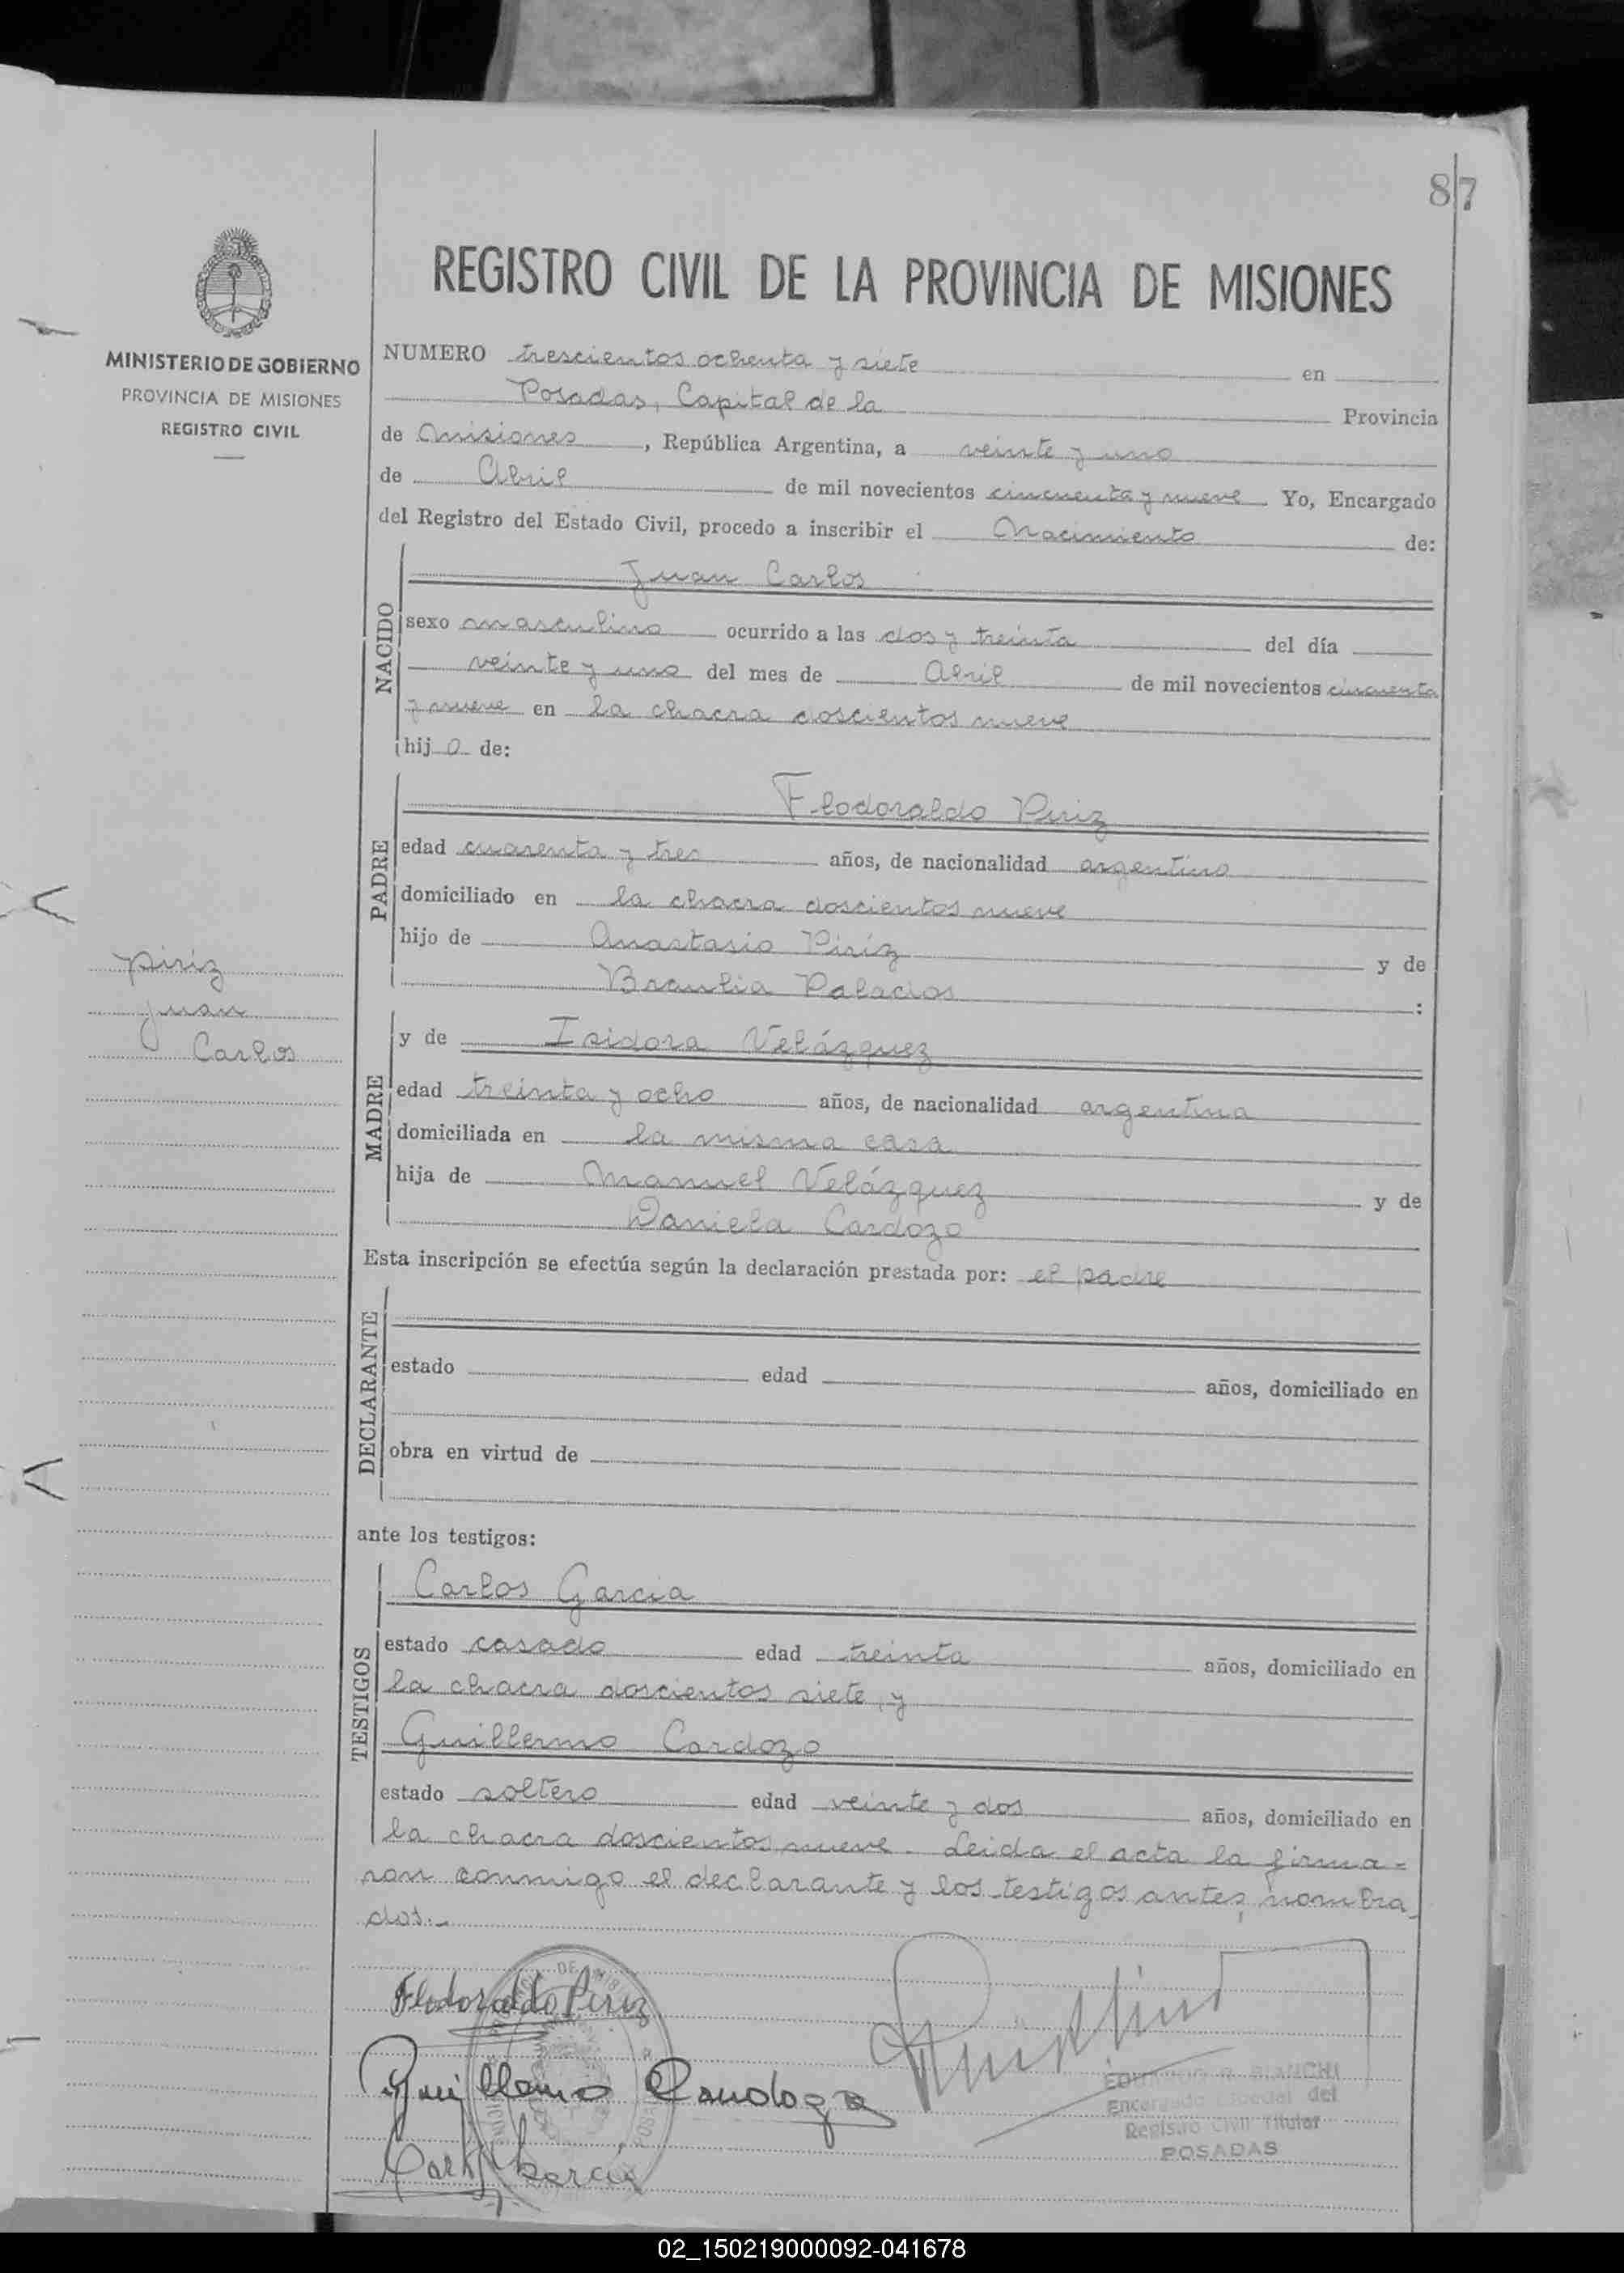 87
REGISTRO CIVIL DE LA PROVINCIA DE MISIONES
MINISTERIO DE GOBIERNO
PROVINCIA DE MISIONES
REGISTRO CIVIL
NUMERO trescientos ochenta y siete en
Posadas, Capital de la Provincia
de Misiones, República Argentina, a veinte y uno
de Abril de mil novecientos cincuenta y nueve Yo, Encargado
del Registro del Estado Civil, procedo a inscribir el Nacimiento de:
NACIDO
Juan Carlos
sexo masculino ocurrido a las dos y treinta del día
veinte y uno del mes de Abril de mil novecientos cincuenta
y nueve en la chacra doscientos nueve
hijo de:
PADRE
Flodoraldo Piriz
edad cuarenta y tres años, de nacionalidad argentino
domiciliado en la chacra doscientos nueve
hijo de Anastasio Piriz y de
Braulia Palacios :
piriz
juan
Carlos
MADRE
y de Isidora Velázquez
edad treinta y ocho años, de nacionalidad argentina
domiciliada en la misma casa
hija de Manuel Velázquez y de
Daniela Cardozo
Esta inscripción se efectúa según la declaración prestada por: el padre
DECLARANTE
estado edad años, domiciliado en
obra en virtud de
ante los testigos:
TESTIGOS
Carlos Garcia
estado casado edad treinta años, domiciliado en
la chacra doscientos siete, y
Guillermo Cardozo
estado soltero edad veinte y dos años, domiciliado en
la chacra doscientos nueve. Leida el acta la firma=
ron conmigo el declarante y los testigos antes nombra
dos.-
Flodoraldo Piriz
Guillermo
Garcia
BIANCHI
Encargado del
Registro Civil Titular
POSADAS
02_150219000092-041678